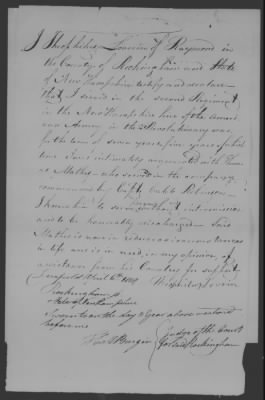 I Theophilus Lovering of Raymond in
the County of Rockingham and State
of New Hampshire testify and declare
that I served in the second Regiment
in the New Hampshire line of the
Army in the Revolutionary war,
for the term of seven years, five years of which
time I was intimately acquainted with
Mathes who served in the company
commanded by Capt Caleb Robinson
I knew him to serve without intermission
and to be honorably discharged. Said
Mathes is now in reduced circumstances
in life and is in need, in my opinion, of
assistance from his Country for support
April 1818 Theophilus Lovering
Rockingham ss
State of New Hampshire
Sworn to on the day & year above mentioned
before me
Judge of the Court
for said Rockingham